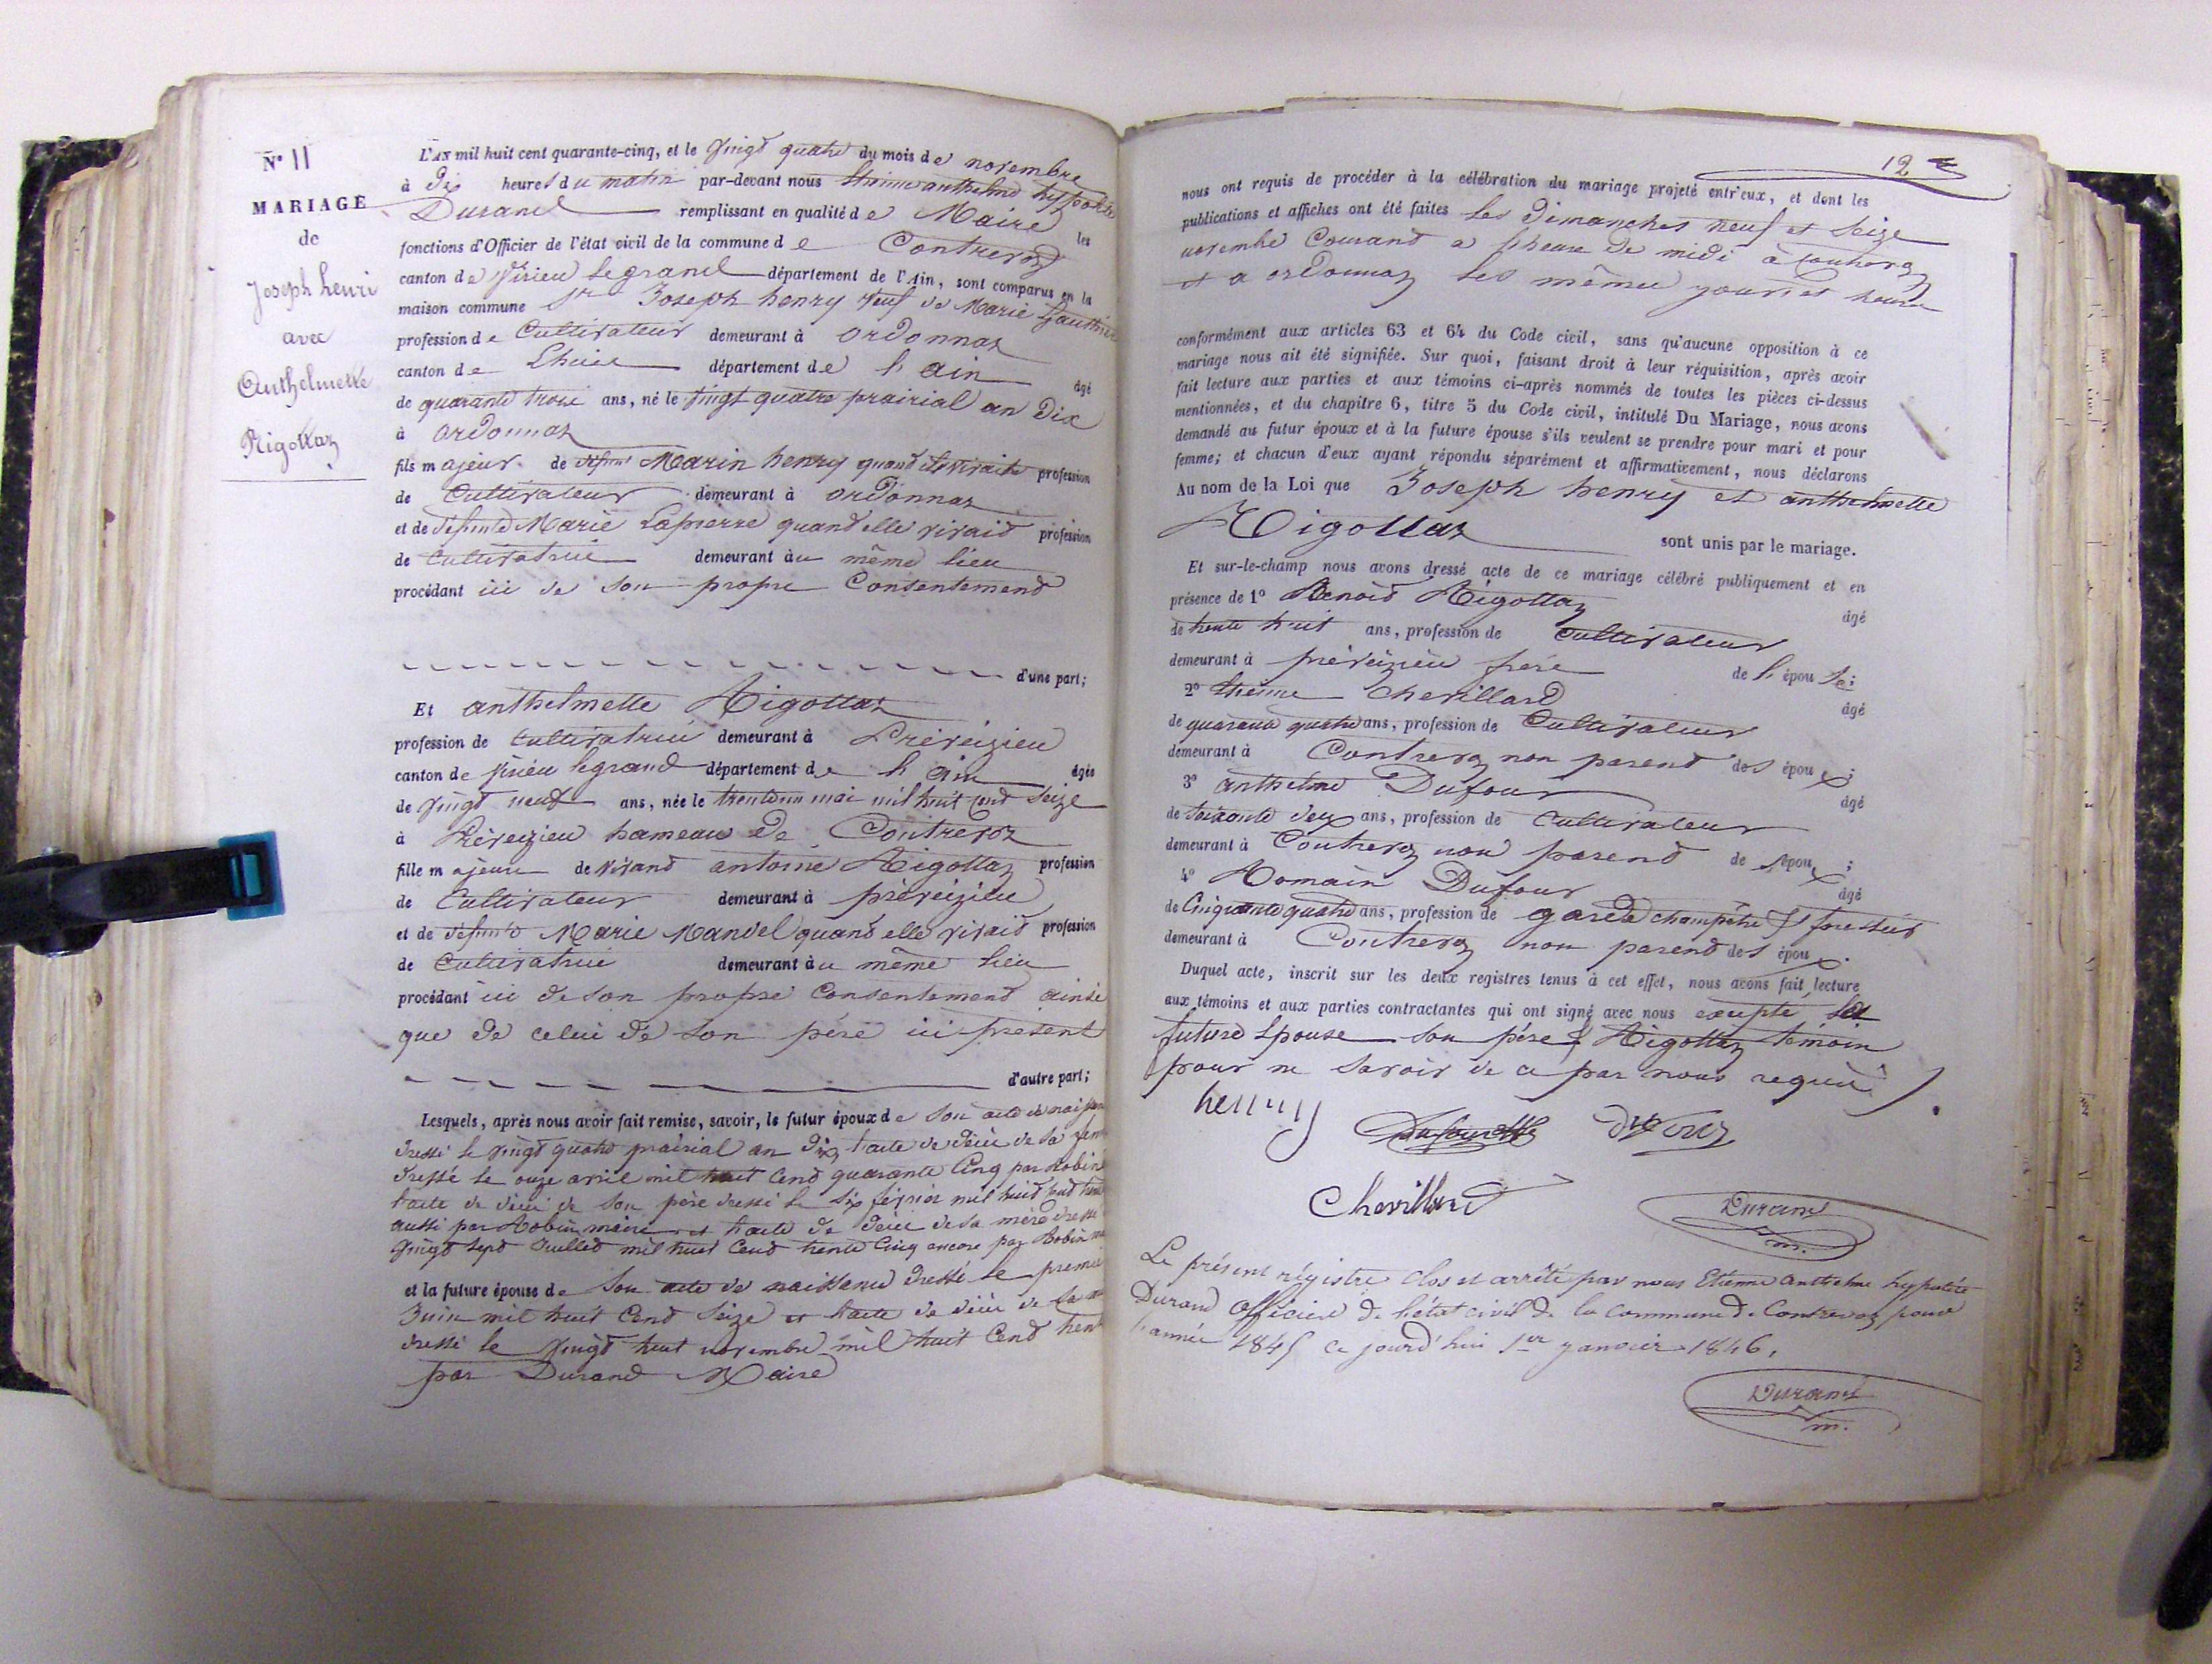 N° 11
MARIAGE
de
Joseph henri
avec
Anthelmette
Rigottaz
L'AN mil huit cent quarante-cinq, et le vingt quatre du mois de novembre
à dix heures du matin par-devant nous Etienne anthelme hypolite
Durand remplissant en qualité de Maire les
fonctions d'Officier de l'état civil de la commune de Contrevoz
canton de virieu legrand département de l'Ain, sont comparus en la
maison commune Sr Joseph henry veuf de Marie Gauthier
profession de Cultivateur demeurant à ordonnaz
canton de Lhuis département de l'ain âgé
de quarante trois ans, né le vingt quatre prairial an Dix
à ordonnaz
fils majeur de défunt Marin henry quand il vivait profession
de Cultivateur demeurant à ordonnaz
et de défunte Marie Lapierre quand elle vivait profession
de Cultivatrice demeurant au même lieu
procédant ici de son propre Consentement
d'une part;
Et anthelmette Rigottaz
profession de Cultivatrice demeurant à Préveizieu
canton de virieu legrand département de l'ain âgée
de vingt neuf ans, née le trente un mai mil huit cent seize
à Préveizieu hameau de Contrevoz
fille majeure de vivant antoine Rigottaz profession
de Cultivateur demeurant à préveizieu
et de défunte Marie Mandel quand elle vivait profession
de Cultivatrice demeurant au même lieu
procédant ici de son propre Consentement ainsi
que de celui de son père ici présent
d'autre part;
Lesquels, après nous avoir fait remise, savoir, le futur époux de son acte de naissance
dressé le vingt quatre prairial an dix, l'acte de décès de sa fem
dressé le onze avril mil huit Cent quarante Cinq par Robin
l'acte de décès de son père dressé le six février mil huit Cent
aussi par Robin maire et l'acte de décès de sa mère dressé
vingt sept Juillet mil huit Cent trente Cinq encore par Robin
et la future épouse de son acte de naissance dressé le premier
Juin mil huit Cent Seize et l'acte de décès de sa
dressé le vingt huit novembre mil huit Cent
par Durand Maire
12
nous ont requis de procéder à la célébration du mariage projeté entr'eux, et dont les
publications et affiches ont été faites les dimanches neuf et Seize
novembre Courant a l'heure de midi à Contrevoz
et a ordonnaz les mêmes jours et heure
conformément aux articles 63 et 64 du Code civil, sans qu'aucune opposition à ce
mariage nous ait été signifiée. Sur quoi, faisant droit à leur réquisition, après avoir
fait lecture aux parties et aux témoins ci-après nommés de toutes les pièces ci-dessus
mentionnées, et du chapitre 6, titre 5 du Code civil, intitulé Du Mariage, nous avons
demandé au futur époux et à la future épouse s'ils veulent se prendre pour mari et pour
femme; et chacun d'eux ayant répondu séparément et affirmativement, nous déclarons
Au nom de la Loi que Joseph henry et anthelmette
Rigottaz sont unis par le mariage.
Et sur-le-champ nous avons dressé acte de ce mariage célébré publiquement et en
présence de 1° Benoid Rigottaz âgé
de trente huit ans, profession de Cultivateur
demeurant à préveizieu frère de l'épouse;
2° Etienne Chevillard âgé
de quarante quatre ans, profession de Cultivateur
demeurant à Contrevoz non parent des époux;
3° anthelme Dufour âgé
de Soixante deux ans, profession de Cultivateur
demeurant à Contrevoz non parend de époux;
4° Romain Dufour âgé
de Cinquante quatre ans, profession de garde champêtre & forestier
demeurant à Contrevoz non parend des époux.
Duquel acte, inscrit sur les deux registres tenus à cet effet, nous avons fait lecture
aux témoins et aux parties contractantes qui ont signé avec nous excepté la
future Epouse son père & Rigottaz témoin
pour ne Savoir de ce par nous requis
henry
Dufour
Chevillard
Durand
m.
Le présent régistre clos et arrêté par nous Etienne Anthelme hypolite
Durand Officier de l'état civil de la commune de Contrevoz pour
l'année 1845 ce jourd'hui 1er janvier 1846,
Durand
m.